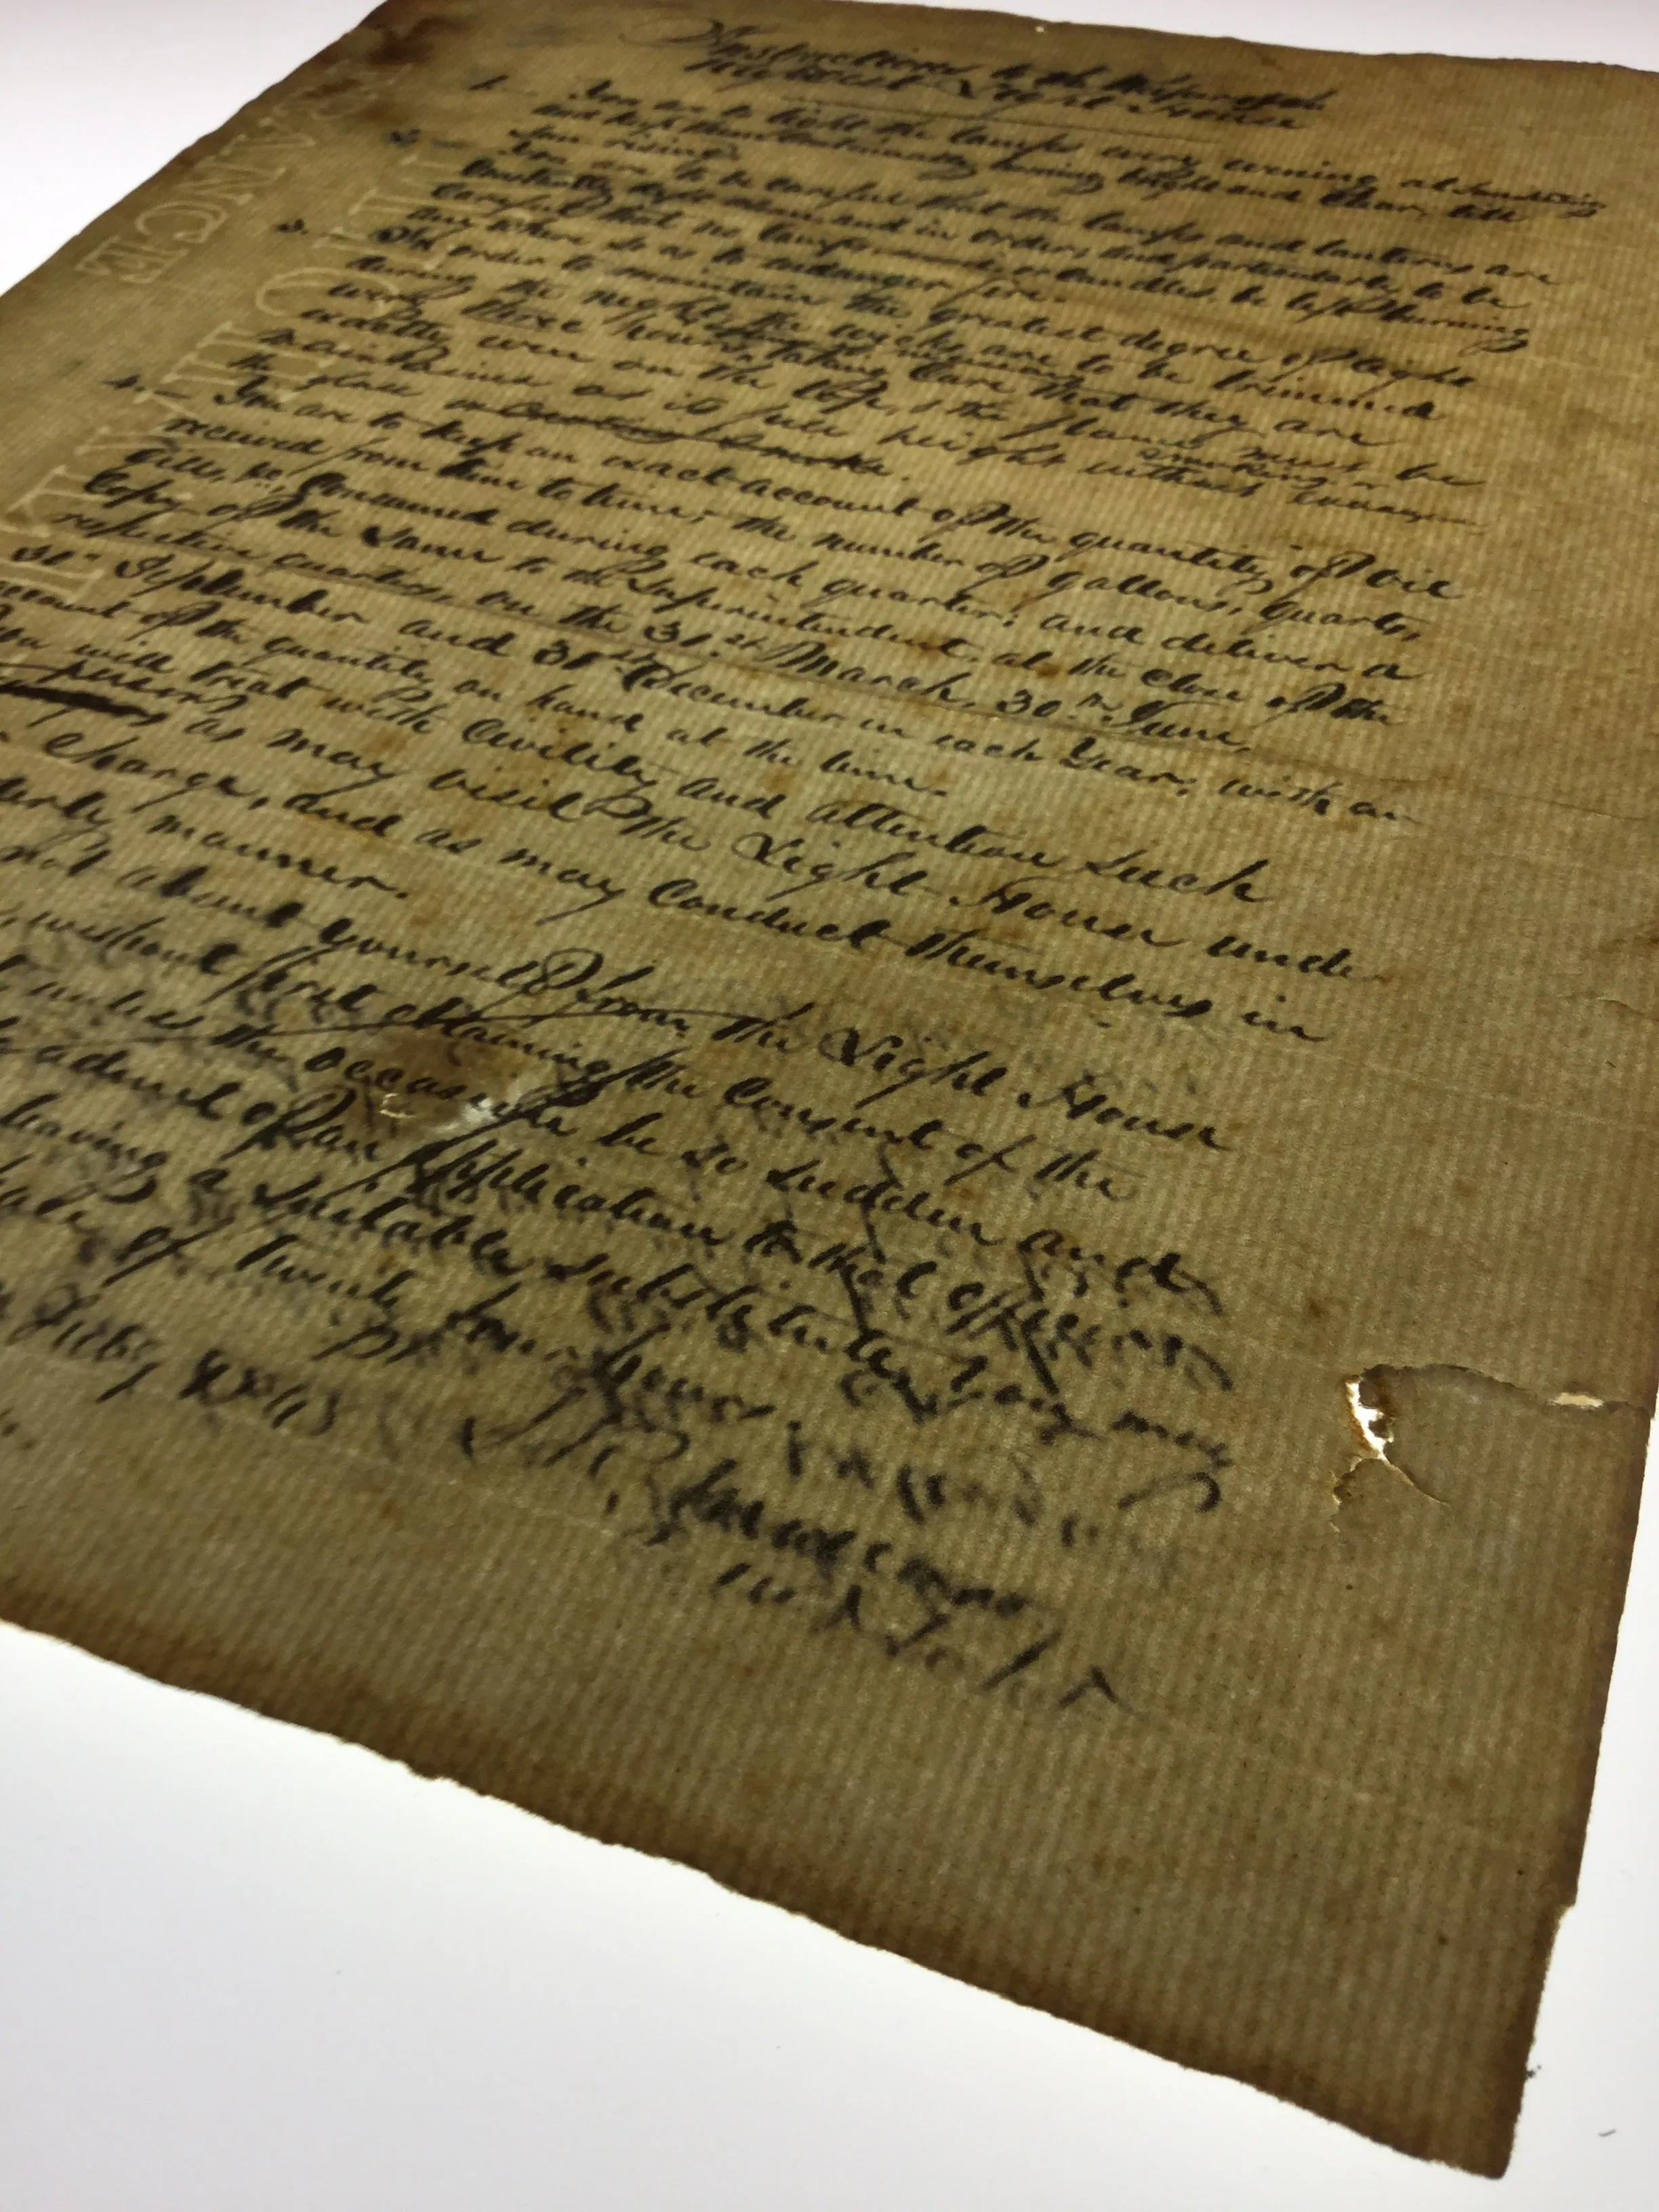 Instructions to the Keeper of the
Light House
1. You are to light the lamps every evening at Sun setting
and keep them continually burning bright and clear, till
Sun rising.
2. You are to be careful that the lamps and lanterns are
constantly kept clean and in order; and particularly to be
careful that no lamps or candles be left burning
any where so as to endanger fire.
3. In order to maintain the greatest degree of light
during the night, the wicks are to be trimmed
every three hours, taking care that they are
exactly even on the top, & the flame must be
maintained at its full height without
smoking
the glass or causing smoke.
4. You are to keep an exact account of the quantity of oil
received from time to time; the number of gallons, quarts,
Gills, &c, consumed during each quarter; and deliver a
Copy of the Same to the Superintendent, at the close of the
respective quarters, on the 31st March, 30th June,
30th September and 31st December in each Year; with an
account of the quantity on hand at the time.
You will treat with Civility and attention Such
persons as may visit the Light House under
Charge, and as may Conduct themselves in
manner.
not absent yourself from the Light House
without first obtaining the Consent of the
unless the occasion be so sudden and
as to admit of an application to that officer
leaving a suitable substitute, you may
of twenty four hours.
W.
SANCE